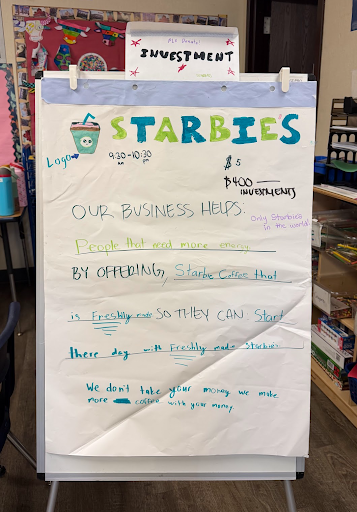 INVESTMENT
STARBIE'S
Logo
9:30-10:30
am pm
$5
$400
INVESTMENTS
OUR BUSINESS HELPS:
Only Starbies
in the world
People that need more energy
BY OFFERING, Starbie Coffee that
is Freshly made SO THEY CAN Start
there day with Freshly made Starbies.
We don't take your money we make
more coffee with your money.